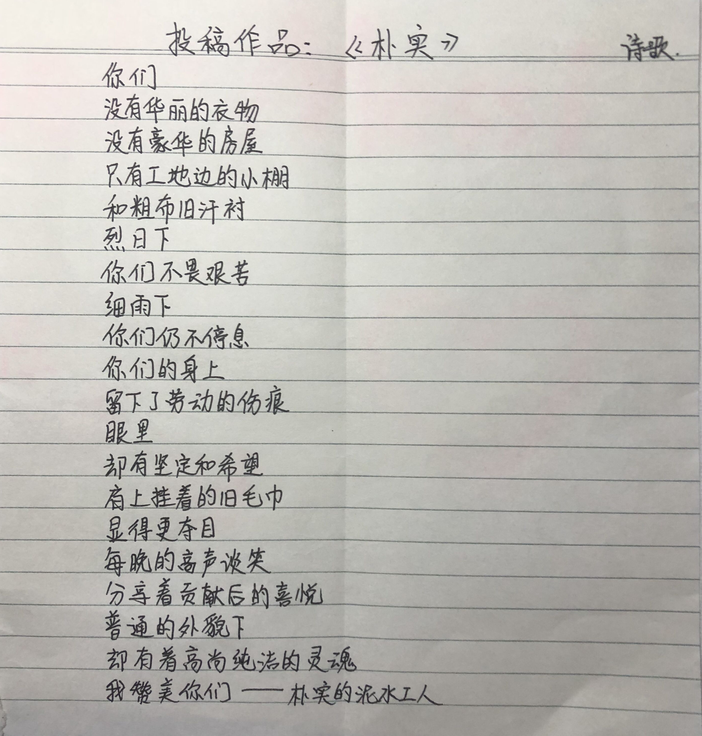 投稿作品：《朴实》 诗歌.
你们
没有华丽的衣物
没有豪华的房屋
只有工地边的小棚
和粗布旧汗衬
烈日下
你们不畏艰苦
细雨下
你们仍不停息
你们的身上
留下了劳动的伤痕
眼里
却有坚定和希望
肩上挂着的旧毛巾
显得更夺目
每晚的高声谈笑
分享着贡献后的喜悦
普通的外貌下
却有着高尚纯洁的灵魂
我赞美你们——朴实的泥水工人